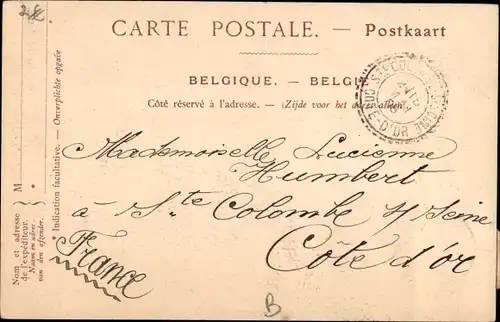 CARTE POSTALE. — Postkaart
BELGIQUE. — BELGI
Côté réservé à l'adresse. — (Zijde voor het adres alleen)
Mademoiselle Lucienne
Humbert
à Ste Colombe s/ Seine
Côte d'or
France
B
M
* Indications facultative. — Onverplichte opgave
Nom et adresse
de l'expéditeur.
Naam en adres
van den afzender.
CÔTE D'OR